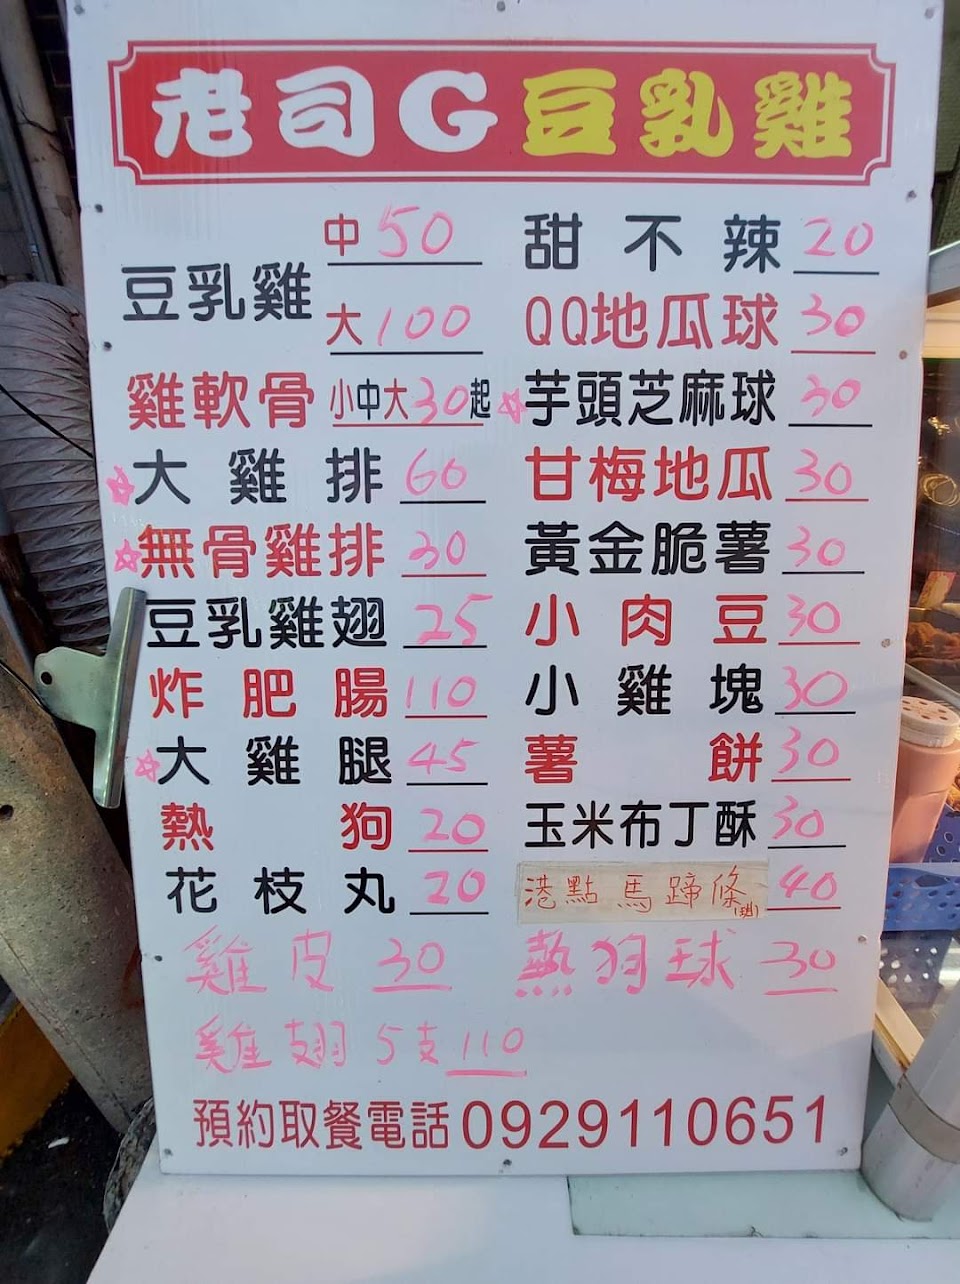 老司G豆乳雞
豆乳雞 中 50
大 100
雞軟骨 小中大30起
☆大雞排 60
☆無骨雞排 30
豆乳雞翅 25
炸肥腸 110
☆大雞腿 45
熱狗 20
花枝丸 20
雞皮 30
雞翅5支 110
甜不辣 20
QQ地瓜球 30
☆芋頭芝麻球 30
甘梅地瓜 30
黃金脆薯 30
小肉豆 30
小雞塊 30
薯餅 30
玉米布丁酥 30
港點馬蹄條 40
熱狗球 30
預約取餐電話0929110651